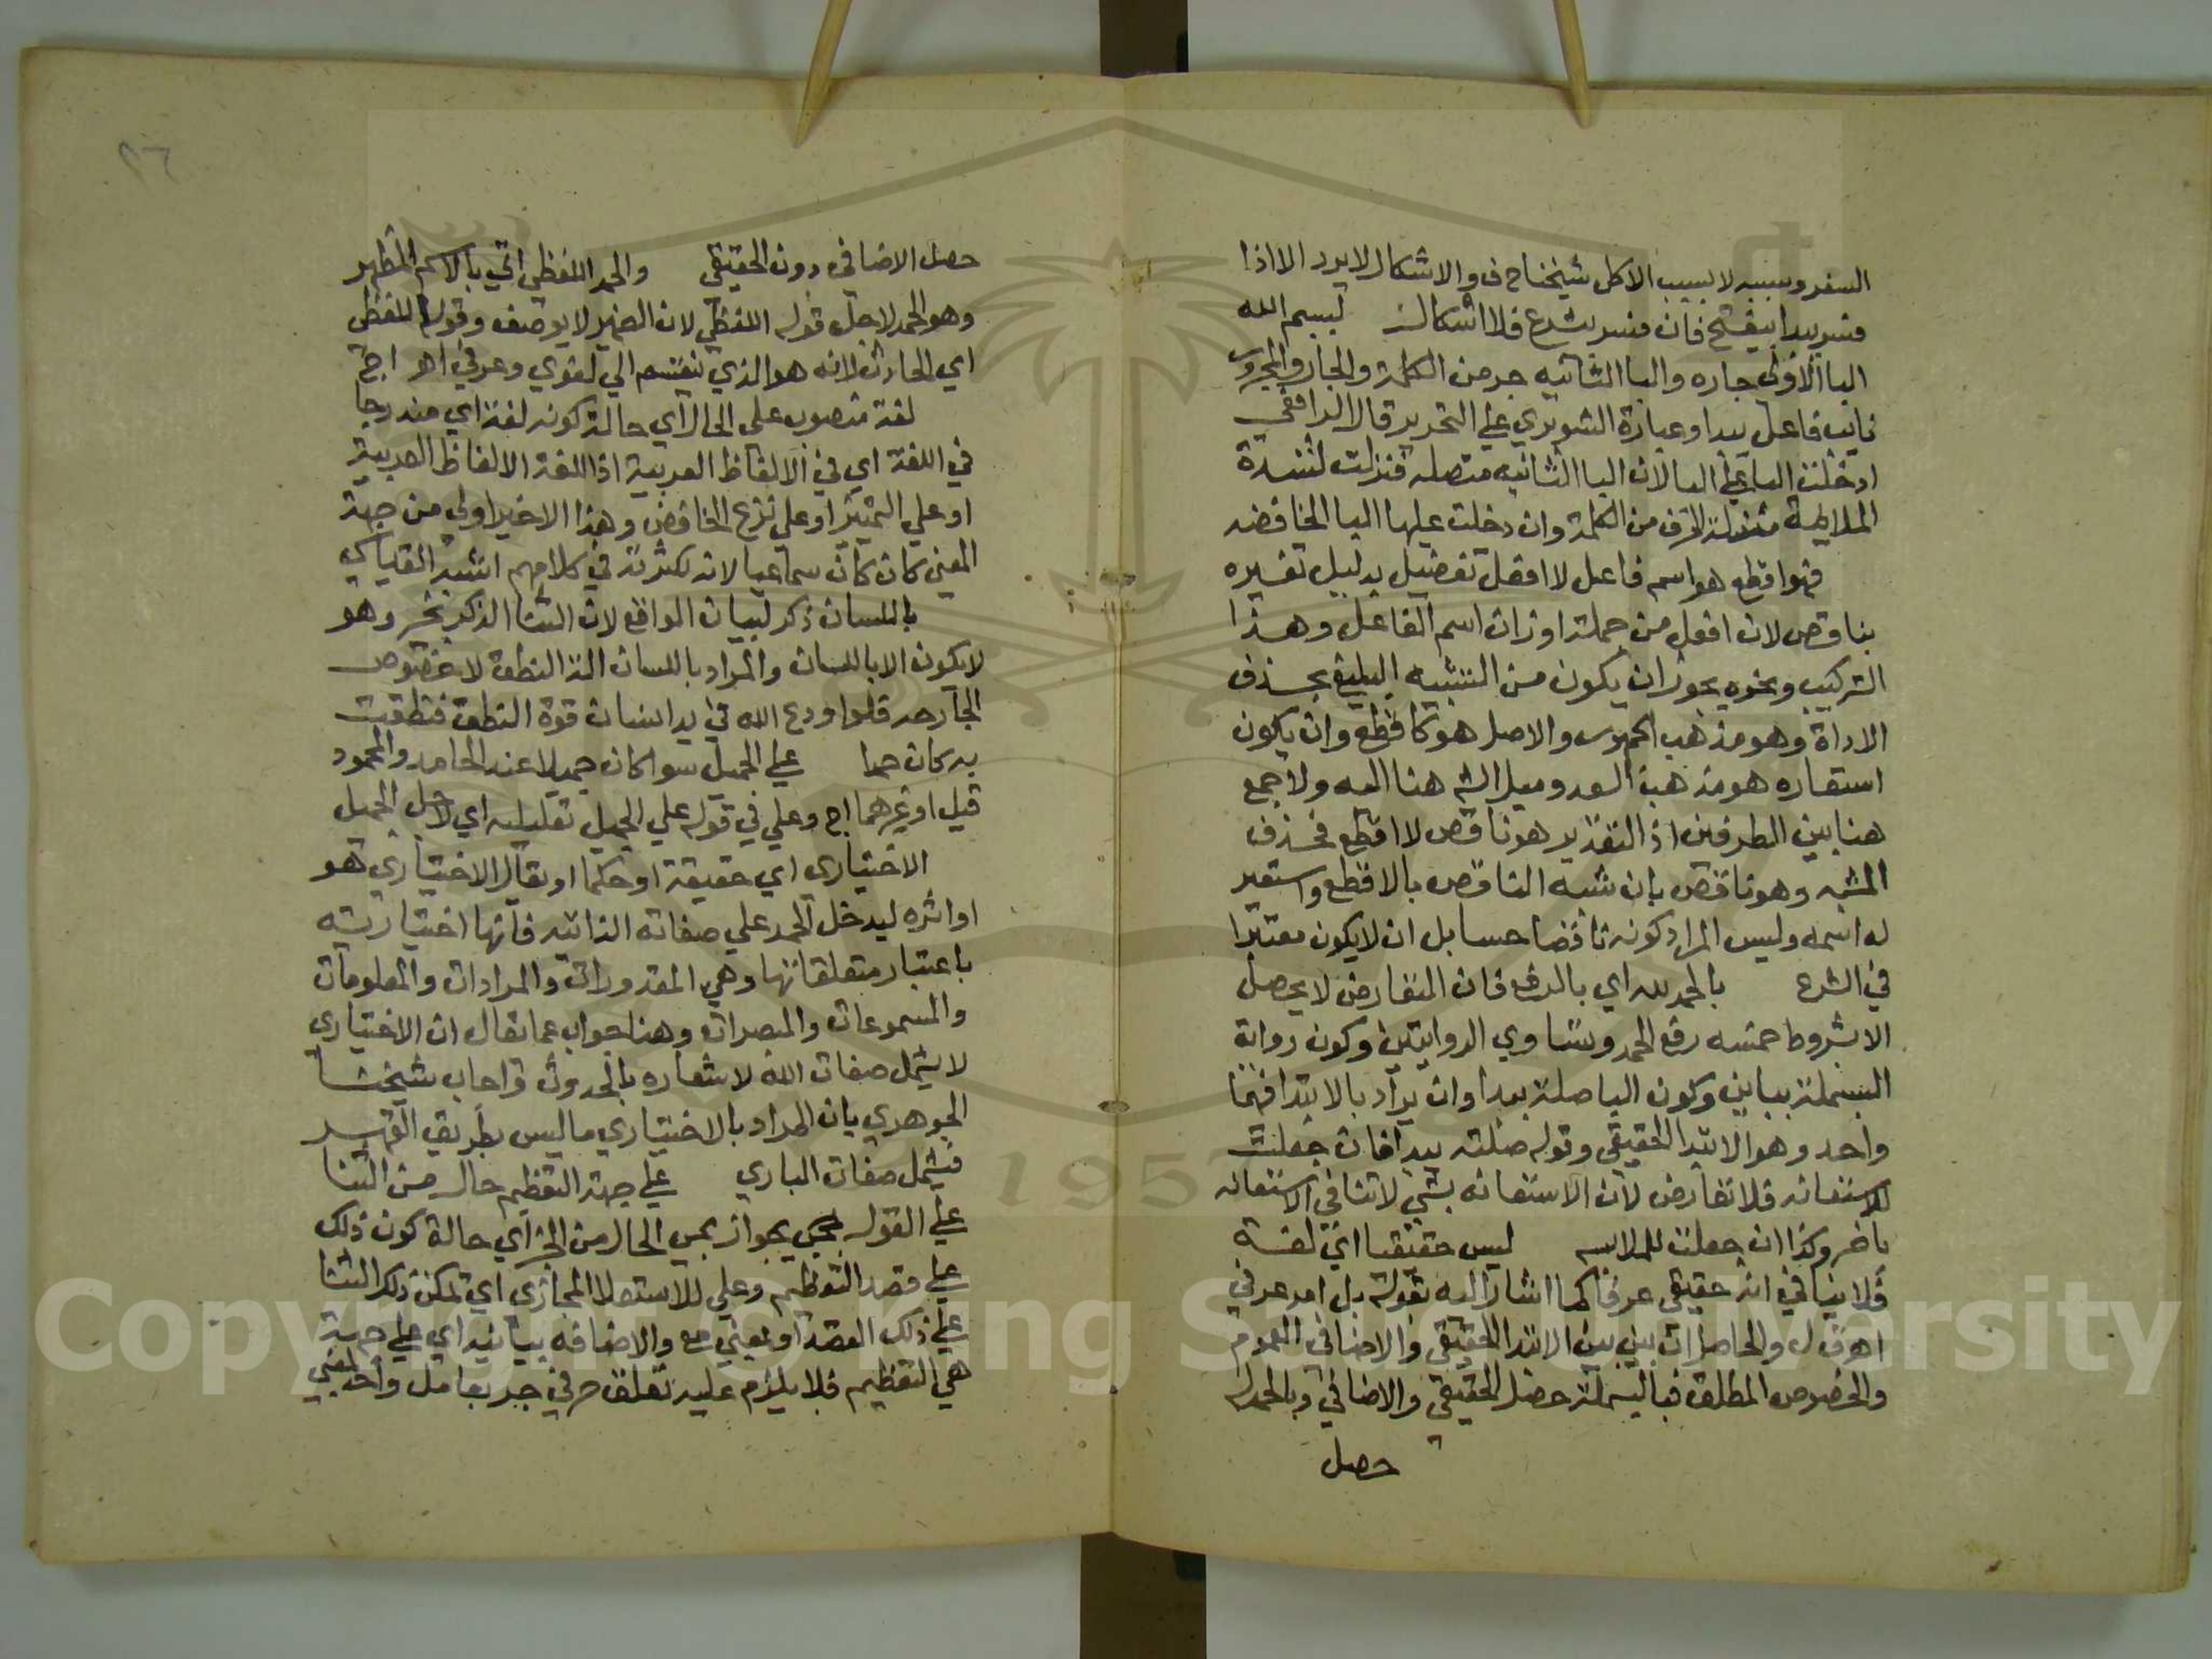 السفر وسببه لا بسبب الاكل شيخناح ف والاشكال لا يرد الا اذا
فسر يبدا بيفتتح فان فسر بيشرع فلا اشكال ببسم الله
البا الاولى جاره والبا الثانيه جز من الكلمة والجار والمجرور
نايب فاعل يبدا وعبارة الشوبري علي التحرير قال الرافعي
ادخلت البا علي البا لان البا الثانيه متصله فنزلت لشدة
الملازمة منزلة الحرف من الكلمة وان دخلت عليها البا الخافضه
فهو اقطع هو اسم فاعل لا افعل تفضيل بدليل تفسيره
بناقص لان افعل من جملة اوزان اسم الفاعل وهذا
التركيب ونحوه يجوز ان يكون من التشبيه البليغ بحذف
الاداة وهو مذهب الجمهور والاصل هو كاقطع وان يكون
استعاره هو مذهب السعد وميل الشم هنا اليه ولا جمع
هنا بين الطرفين اذ التقدير هو ناقص لا اقطع فحذف
المشبه وهو ناقص بان شبه الناقص بالاقطع واستعير
له اسمه وليس المراد كونه ناقضا حسا بل ان لا يكون معتبرا
في الشرع بالحمد لله اي بالرفع فان التعارض لا يحصل
الا بشروط خمسه رفع الحمد وتساوي الروايتين وكون رواية
البسملة ببائين وكون البا صلة يبدا وان يراد بالابتدا فيهما
واحد وهو الابتدا الحقيقي وقوله صلته يبدا فان جعلت
للاستعانه فلا تعارض لان الاستعانه بشي لا تنافي الاستعانه
باخر وكذا ان جعلت للملابسه ليس حقيقيا اي لغة
فلا ينافي انه حقيقي عرفا كما اشار اليه بقوله بل امر عرفي
اهـ ق ل والحاصل ان بين بين الابتدا الحقيقي والاضافي العموم
والخصوص المطلق فبالبسملة حصل الحقيقي والاضافي وبالحمدله
حصل
٢٦
حصل الاضافي دون الحقيقي والحمد اللفظي اتي بالاسم المظهر
وهو الحمد لاجل قوله اللفظي لان الضمير لا يوصف وقوله اللفظي
اي الحادث لانه هو الذي ينقسم الي لغوي وعرفي اهـ اج
لغة منصوب على الحال اي حالة كونه لغة اي مندرجا
في اللغة اي في الالفاظ العربية اذ اللغة الالفاظ العربية
او علي التمييز او علي نزع الخافض وهذا الاخير اولي من جهة
المعني كان كان سماعيا لانه لكثرته في كلامهم اشبه القياسي
باللسان ذكر لبيان الواقع لان الثنا الذكر بخير وهو
لا يكون الا باللسان والمراد باللسان الة النطق لا خصوص
الجارحه فلو اودع الله في يد انسان قوة النطق فنطقت
به كان حمدا علي الجميل سوا كان جميلا عند الحامد والمحمود
قيل او غيرهما اج وعلي في قوله علي الجميل تعليليه اي لاجل الجميل
الاختيارى اي حقيقة او حكما او يقال الاختياري هو
او اثره ليدخل الحمد علي صفاته الذاتيه فانها اختياريته
باعتبار متعلقاتها وهي المقدورات والمرادات والمعلومات
والمسموعات والمبصرات وهذا جواب عما يقال ان الاختيارى
لا يشمل صفات الله لاشعاره بالحدوث واجاب شيخنا
الجوهري بان المراد بالاختياري ما ليس بطريق القهر
فيشمل صفات الباري علي جهة التعظيم حال من الثنا
علي القول بجواز مجي الحال من الخبر اي حالة كون ذلك
علي قصد التعظيم وعلي للاستعلا المجازى اي تمكن ذلك الثنا
علي ذلك القصد او بمعني مع والاضافه بيانيه اي علي جهة
هي التعظيم فلا يلزم عليه تعلق حرفي جر بعامل واحد بمعني
Copyright © King Saud University
1957